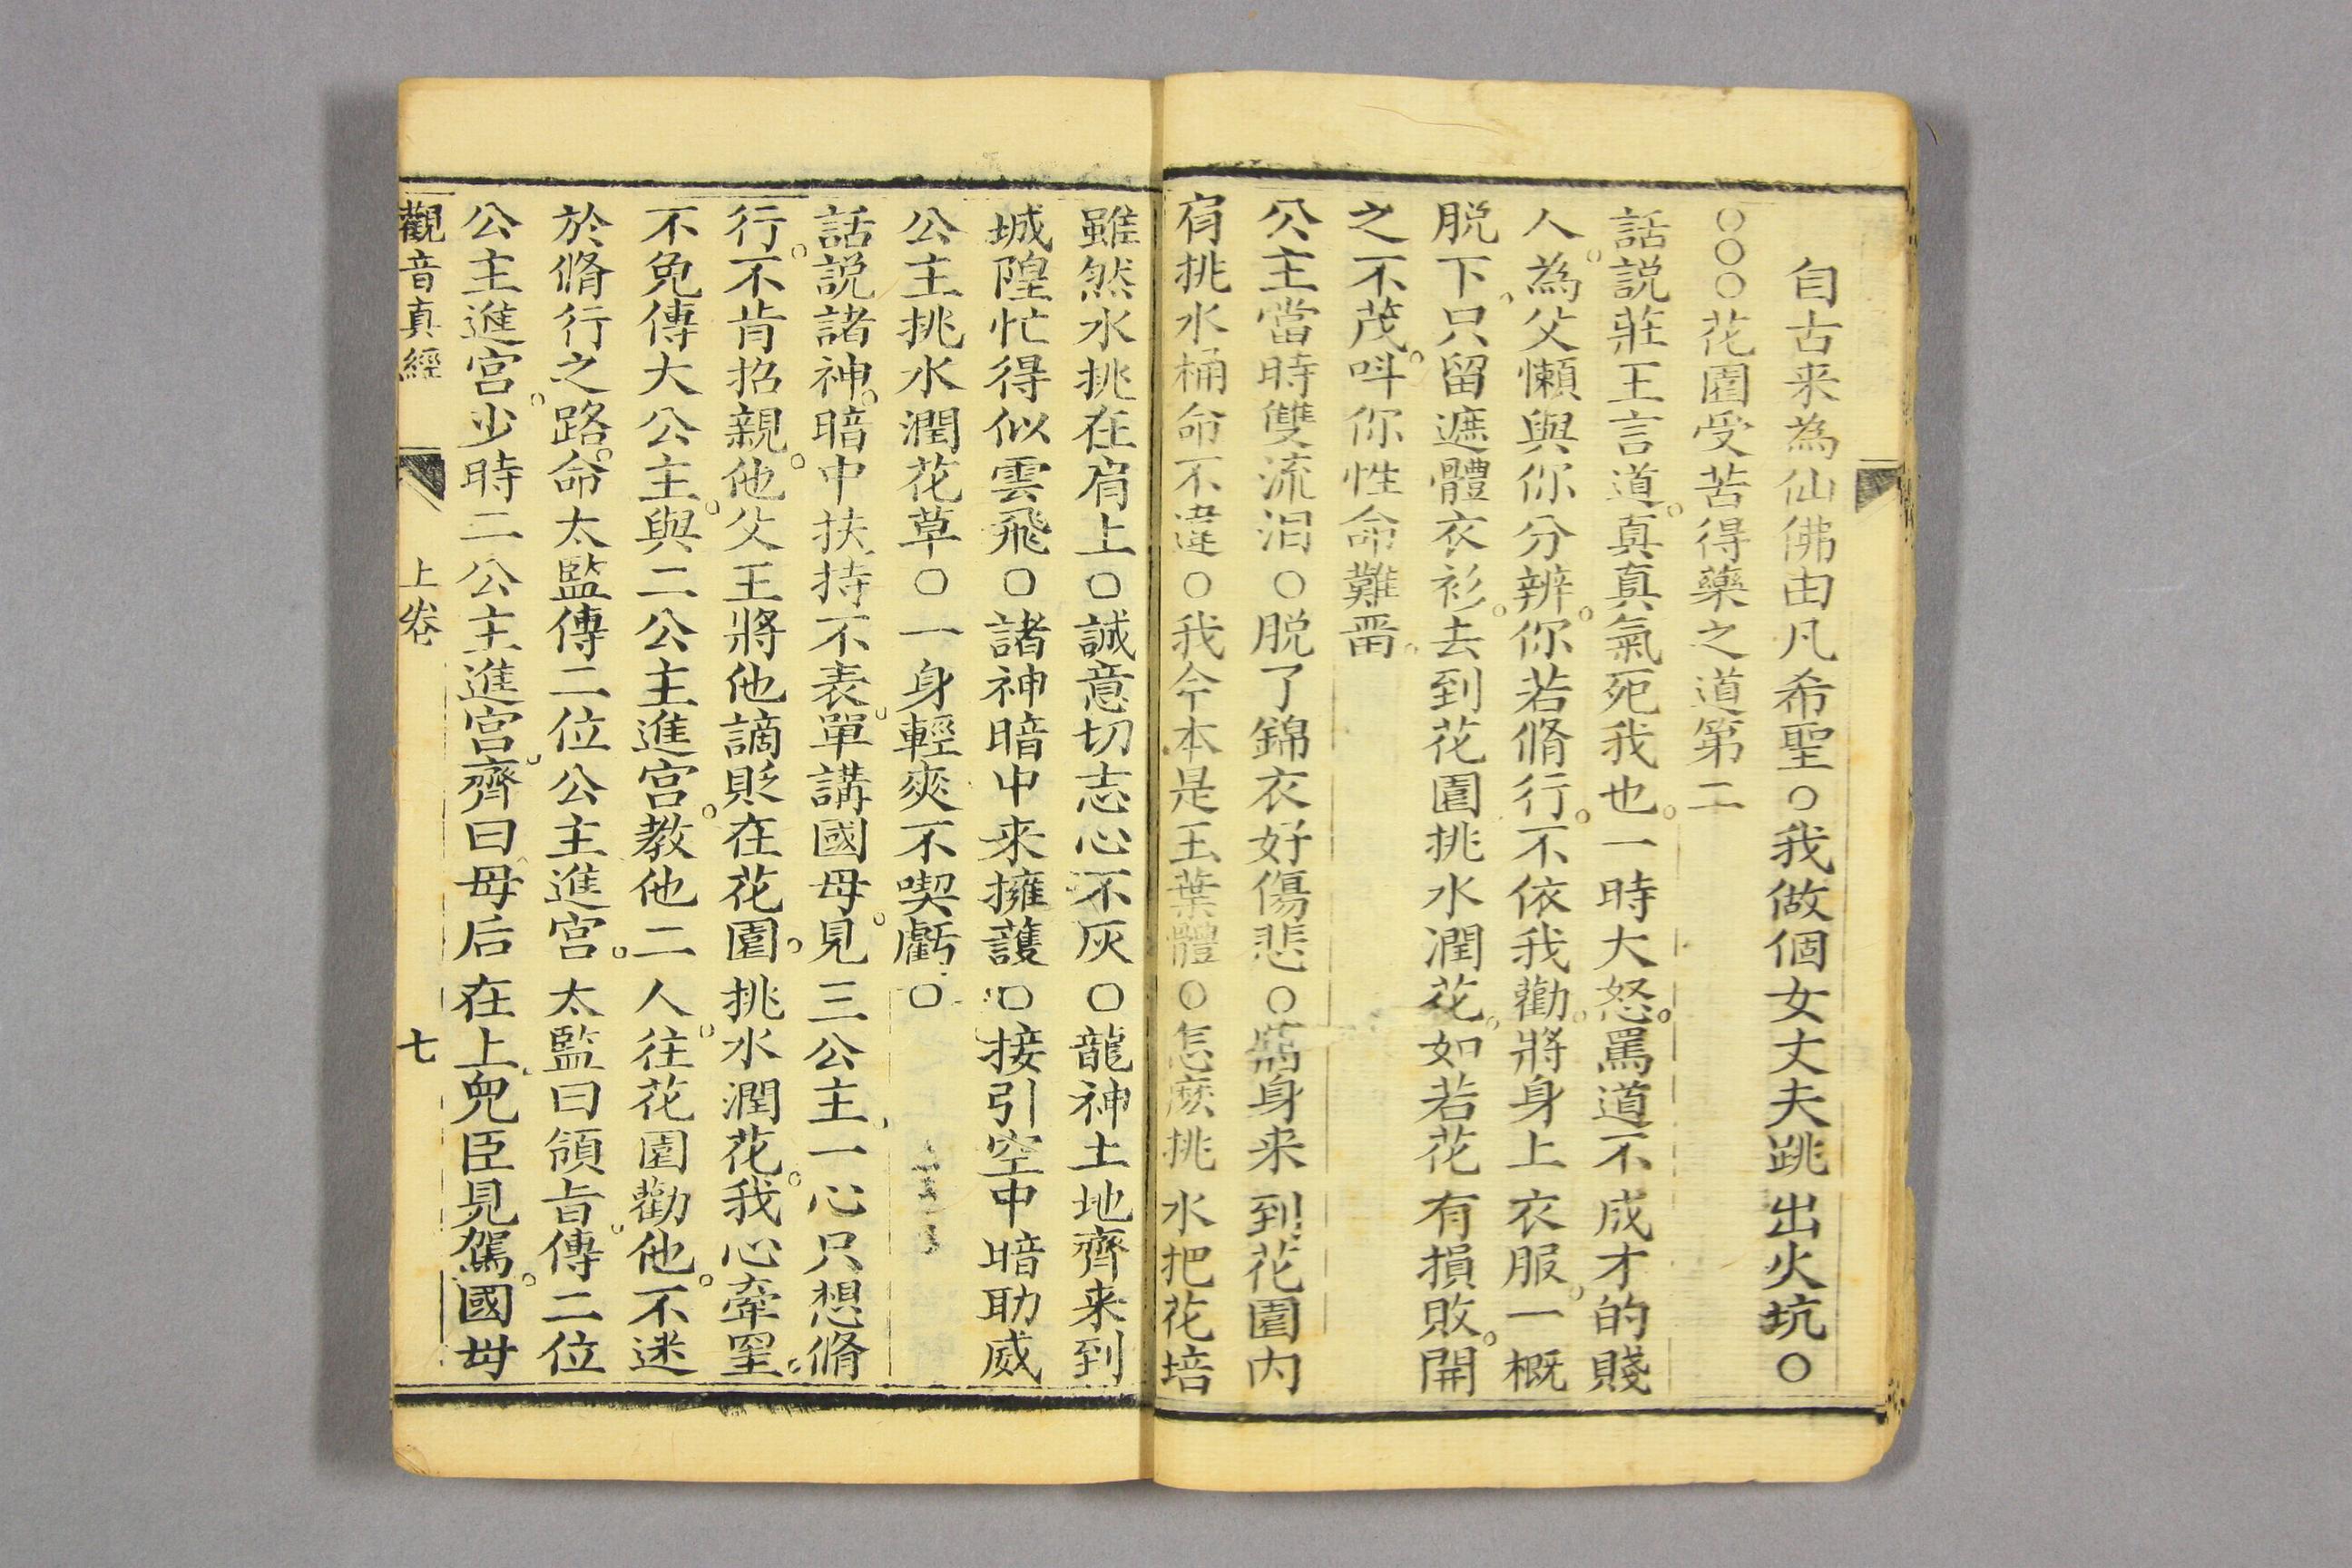 自古来為仙佛由凡希聖○我做個女丈夫跳出火坑○
○○○花園受苦得藥之道第二
話説莊王言道。真真氣死我也。一時大怒。罵道不成才的賤
人。為父懶與你分辨。你若脩行。不依我勸。將身上衣服。一概
脱下。只留遮體衣衫。去到花園挑水潤花。如若花有損敗。開
之不茂。呌你性命難畱。
公主當時雙流泪○脱了錦衣好傷悲○身来到花園内
肩挑水桶命不違○我今本是玉葉體○怎麽挑水把花培
雖然水挑在肩上○誠意切志心不灰○龍神土地齊来到
城隍忙得似雲飛○諸神暗中来擁護○接引空中暗助威
公主挑水潤花草○一身輕爽不喫虧○
話説諸神。暗中扶持不表。單講國母。見三公主。一心只想脩
行。不肯招親。他父王將他謫貶在花園。挑水潤花。我心牽罣。
不免傳大公主。與二公主進宮。教他二人。往花園勸他。不迷
於脩行之路。命太監傳二位公主進宮。太監曰領旨。傳二位
公主進宮。少時二公主進宮。齊曰母后在上。兒臣見駕。國母
觀音真經 上卷 七